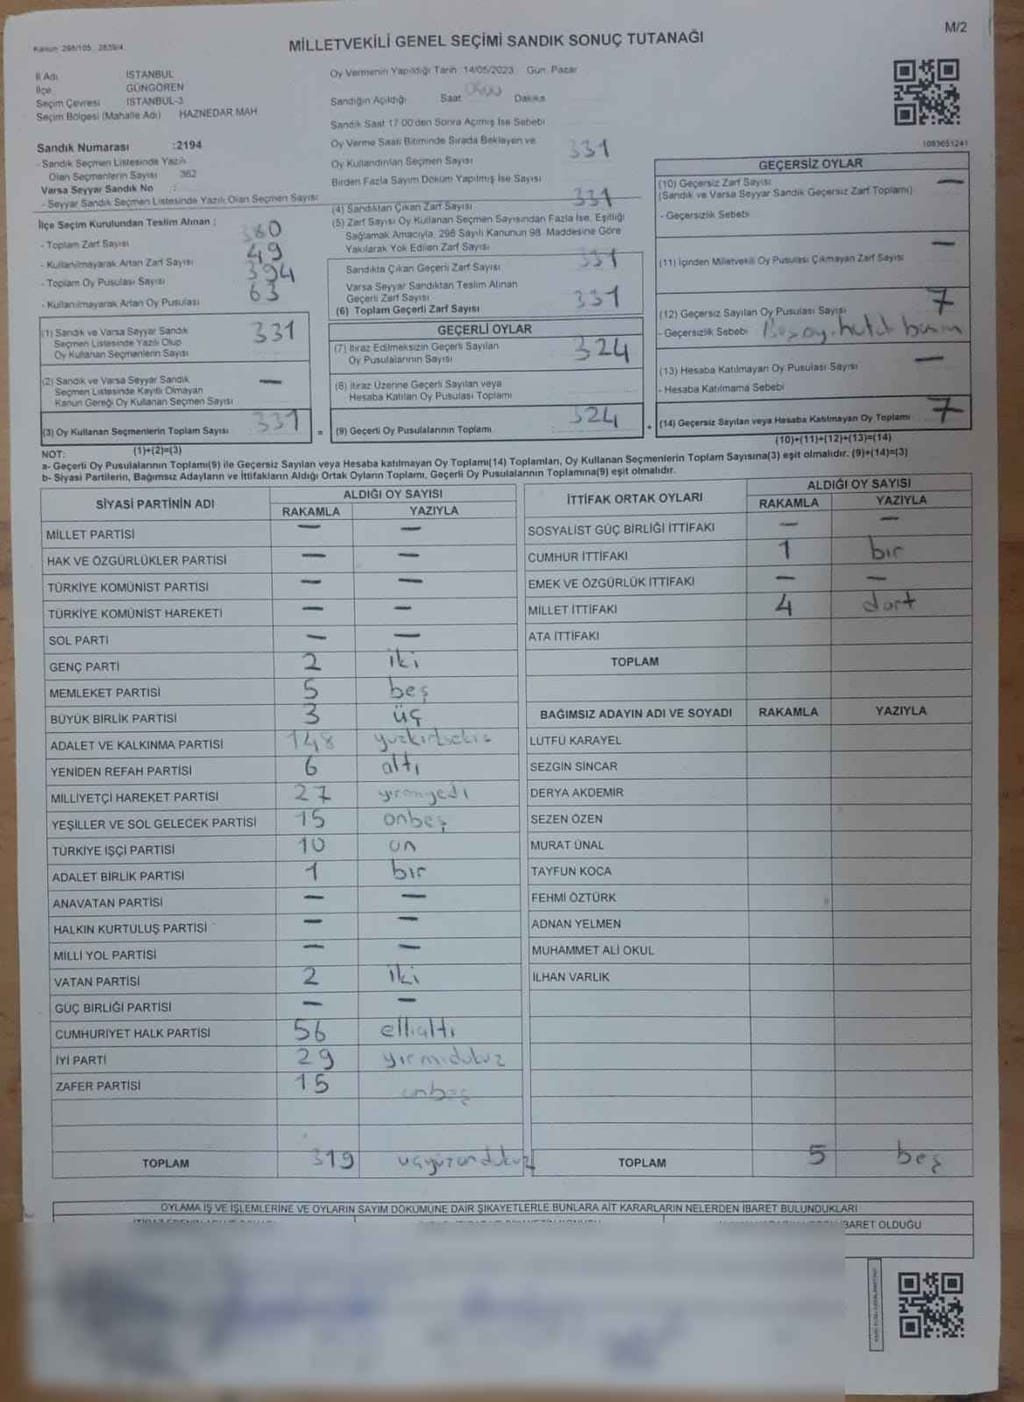 Kanun 298/105, 2839/4
MİLLETVEKİLİ GENEL SEÇİMİ SANDIK SONUÇ TUTANAĞI
M/2
İl Adı İSTANBUL
İlçe GÜNGÖREN
Seçim Çevresi İSTANBUL-3
Seçim Bölgesi (Mahalle Adı) HAZNEDAR MAH
Sandık Numarası :2194
- Sandık Seçmen Listesinde Yazılı
Olan Seçmenlerin Sayısı 362
Varsa Seyyar Sandık No :
- Seyyar Sandık Seçmen Listesinde Yazılı Olan Seçmen Sayısı
İlçe Seçim Kurulundan Teslim Alınan ;
- Toplam Zarf Sayısı 380
- Kullanılmayarak Artan Zarf Sayısı 49
- Toplam Oy Pusulası Sayısı 394
- Kullanılmayarak Artan Oy Pusulası 63
(1) Sandık ve Varsa Seyyar Sandık
Seçmen Listesinde Yazılı Olup
Oy Kullanan Seçmenlerin Sayısı 331
(2) Sandık ve Varsa Seyyar Sandık
Seçmen Listesinde Kayıtlı Olmayan
Kanun Gereği Oy Kullanan Seçmen Sayısı —
(3) Oy Kullanan Seçmenlerin Toplam Sayısı 331
(1)+(2)=(3)
Oy Vermenin Yapıldığı Tarih 14/05/2023 Gün Pazar
Sandığın Açıldığı Saat Dakika
Sandık Saat 17:00'den Sonra Açılmış İse Sebebi
Oy Verme Saati Bitiminde Sırada Bekleyen ve
Oy Kullandırılan Seçmen Sayısı 331
Birden Fazla Sayım Döküm Yapılmış İse Sayısı
(4) Sandıktan Çıkan Zarf Sayısı 331
(5) Zarf Sayısı Oy Kullanan Seçmen Sayısından Fazla İse, Eşitliği
Sağlamak Amacıyla, 298 Sayılı Kanunun 98. Maddesine Göre
Yakılarak Yok Edilen Zarf Sayısı
Sandıkta Çıkan Geçerli Zarf Sayısı 331
Varsa Seyyar Sandıktan Teslim Alınan
Geçerli Zarf Sayısı
(6) Toplam Geçerli Zarf Sayısı 331
GEÇERLİ OYLAR
(7) İtiraz Edilmeksizin Geçerli Sayılan
Oy Pusulalarının Sayısı 324
(8) İtiraz Üzerine Geçerli Sayılan veya
Hesaba Katılan Oy Pusulası Toplamı
= (9) Geçerli Oy Pusulalarının Toplamı 324
1083651241
GEÇERSİZ OYLAR
(10) Geçersiz Zarf Sayısı —
(Sandık ve Varsa Seyyar Sandık Geçersiz Zarf Toplamı)
- Geçersizlik Sebebi
(11) İçinden Milletvekili Oy Pusulası Çıkmayan Zarf Sayısı —
(12) Geçersiz Sayılan Oy Pusulası Sayısı 7
- Geçersizlik Sebebi
(13) Hesaba Katılmayan Oy Pusulası Sayısı —
- Hesaba Katılmama Sebebi
(14) Geçersiz Sayılan veya Hesaba Katılmayan Oy Toplamı 7
(10)+(11)+(12)+(13)=(14)
NOT:
a- Geçerli Oy Pusulalarının Toplamı(9) ile Geçersiz Sayılan veya Hesaba katılmayan Oy Toplamı(14) Toplamları, Oy Kullanan Seçmenlerin Toplam Sayısına(3) eşit olmalıdır. (9)+(14)=(3)
b- Siyasi Partilerin, Bağımsız Adayların ve İttifakların Aldığı Ortak Oyların Toplamı, Geçerli Oy Pusulalarının Toplamına(9) eşit olmalıdır.
SİYASİ PARTİNİN ADI ALDIĞI OY SAYISI
RAKAMLA YAZIYLA
MİLLET PARTİSİ — —
HAK VE ÖZGÜRLÜKLER PARTİSİ — —
TÜRKİYE KOMÜNİST PARTİSİ — —
TÜRKİYE KOMÜNİST HAREKETİ — —
SOL PARTİ — —
GENÇ PARTİ 2 iki
MEMLEKET PARTİSİ 5 beş
BÜYÜK BİRLİK PARTİSİ 3 üç
ADALET VE KALKINMA PARTİSİ 148 yüzkırksekiz
YENİDEN REFAH PARTİSİ 6 altı
MİLLİYETÇİ HAREKET PARTİSİ 27 yirmiyedi
YEŞİLLER VE SOL GELECEK PARTİSİ 15 onbeş
TÜRKİYE İŞÇİ PARTİSİ 10 on
ADALET BİRLİK PARTİSİ 1 bir
ANAVATAN PARTİSİ — —
HALKIN KURTULUŞ PARTİSİ — —
MİLLİ YOL PARTİSİ — —
VATAN PARTİSİ 2 iki
GÜÇ BİRLİĞİ PARTİSİ — —
CUMHURİYET HALK PARTİSİ 56 ellialtı
İYİ PARTİ 29 yirmidokuz
ZAFER PARTİSİ 15 onbeş
TOPLAM 319 üçyüzondokuz
İTTİFAK ORTAK OYLARI ALDIĞI OY SAYISI
RAKAMLA YAZIYLA
SOSYALİST GÜÇ BİRLİĞİ İTTİFAKI — —
CUMHUR İTTİFAKI 1 bir
EMEK VE ÖZGÜRLÜK İTTİFAKI — —
MİLLET İTTİFAKI 4 dört
ATA İTTİFAKI
TOPLAM
BAĞIMSIZ ADAYIN ADI VE SOYADI RAKAMLA YAZIYLA
LÜTFÜ KARAYEL
SEZGİN SİNCAR
DERYA AKDEMİR
SEZEN ÖZEN
MURAT ÜNAL
TAYFUN KOCA
FEHMİ ÖZTÜRK
ADNAN YELMEN
MUHAMMET ALİ OKUL
İLHAN VARLIK
TOPLAM 5 beş
OYLAMA İŞ VE İŞLEMLERİNE VE OYLARIN SAYIM DÖKÜMÜNE DAİR ŞİKAYETLERLE BUNLARA AİT KARARLARIN NELERDEN İBARET BULUNDUKLARI
BARET OLDUĞU